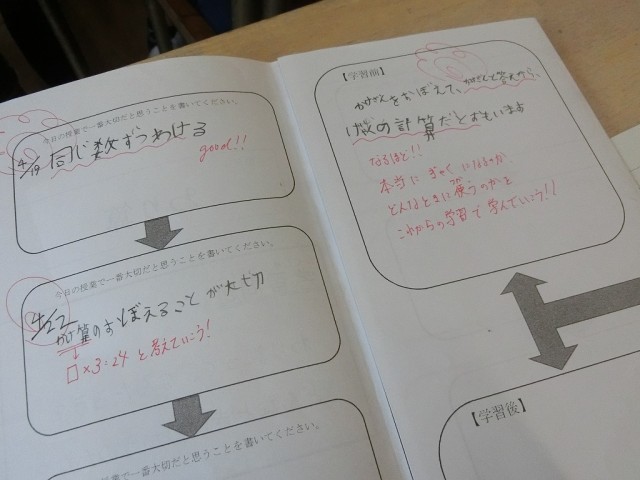 今日の授業で一番大切だと思うことを書いてください。
4/19 同じ数ずつわける
good!!
今日の授業で一番大切だと思うことを書いてください。
4/22
かけ算のをおぼえることが大切
□×3=24 と考えていこう!
業で一番大切だと思うことを書いてください。
【学習前】
をおぼえて、
の計算だとおもいます
なるほど!!
本当に ぎゃくになるのか
どんなときに使うのかを
これからの学習で学んでいこう!!
【学習後】